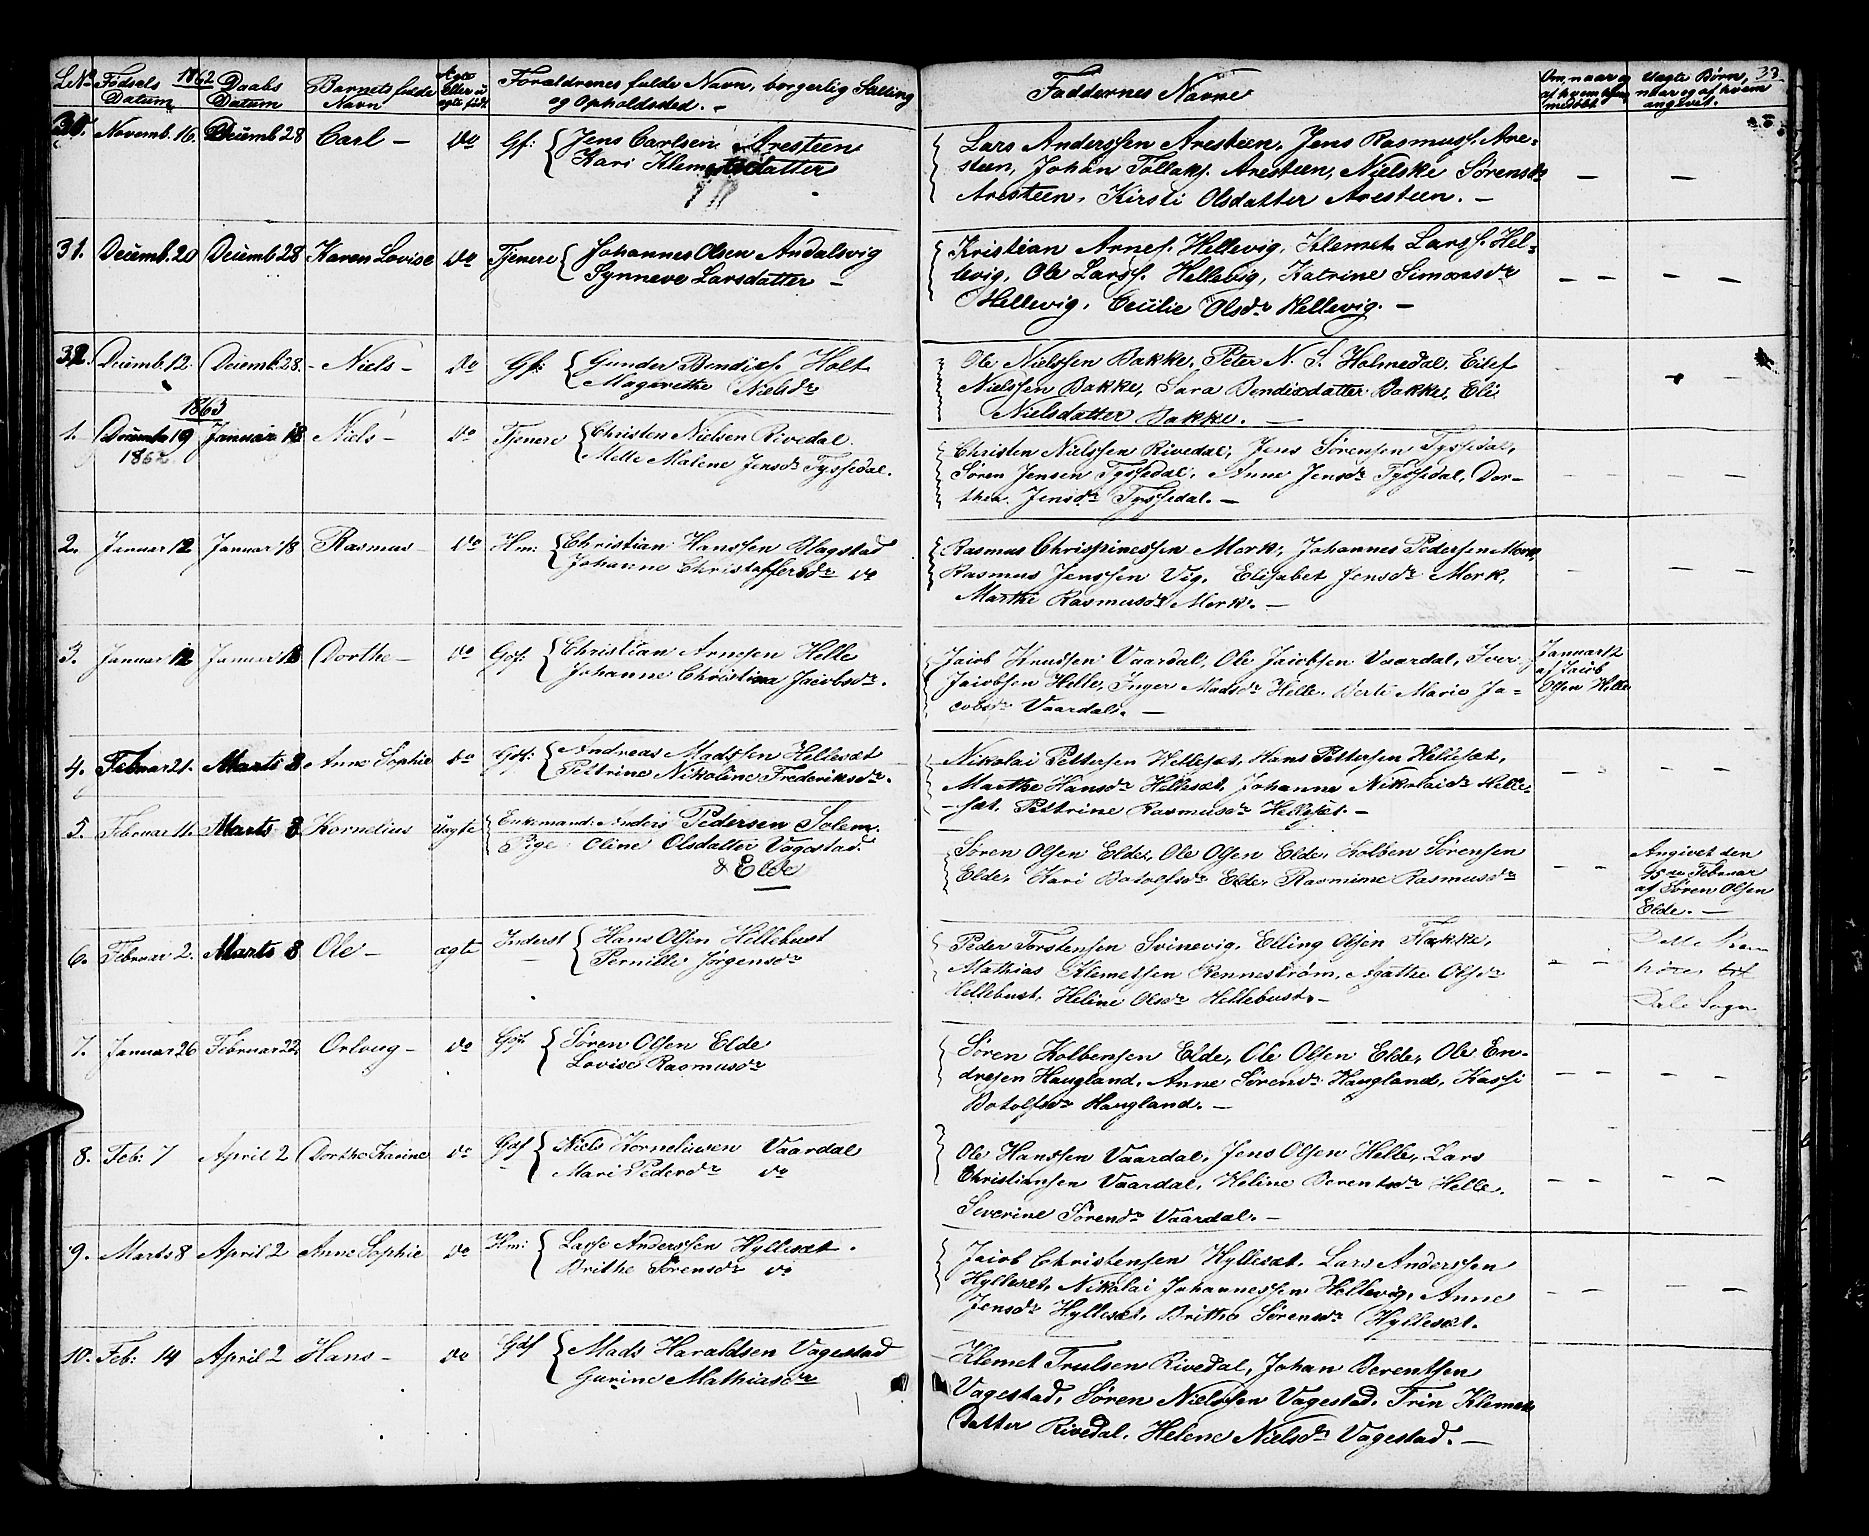 L.No Fødsels Datum 1862 Daabs Datum Barnets fulde Navn Ægte eller uægte født Forældrenes fulde Navn, borgerlig Stilling og Opholdsted. – Faddernes Navne 33
30. Novemb. 16. Decemb 28 Carl – do Gf: Jens Carlsen Aresteen
Kari Klemetsdatter
Lars Anderssen Aresteen, Jens Rasmuss. Are-
steen, Johan Tollaks. Aresteen, Nielske Sørensdr
Aresteen, Kirsti Olsdatter Aresteen. –
31. Decemb. 20 Decemb 28 Karen Lovise do Tjenere Johannes Olsen Andalsvig
Synneve Larsdatter –
Kristian Arnes. Hellevig, Klemet Larss. Hel-
levig, Ole Larss. Hellevig, Katrine Simonsdr
Hellevig, Cecilie Olsdr Hellevig. –
32. Decemb. 12. Decemb. 28. – Niels – do Gf: Gunder Bendixs. Holt
Magarethe Nielsdr
Ole Nielssen Bakke, Peter N. S. Holmedal, Eilef
Nielssen Bakke, Sara Bendixdatter Bakke, Eli
Nielsdatter Bakke. –
1863
1. Decemb 19 1862 Januar 18 Niels – do Tjenere Christen Nielsen Rivedal.
Mette Malene Jensdr Tyssedal.
Christen Nielssen Rivedal, Jens Sørensen Tyssedal,
Søren Jensen Tyssedal, Anne Jensdr Tyssedal, Dor-
thea Jensdr Tyssedal. –
2. Januar 12 Januar 18 Rasmus – do Hm: Christian Hanssen Slagstad
Johanne Christoffersdr do
Rasmus Chrispinessen Mork, Johannes Pedersen Mork,
Rasmus Jenssen Vig, Elisabet Jensdr Mork,
Marthe Rasmusdr Mork. –
3. Januar 12 Januar 18 Dorthe – do Gdf: Christian Arnesen Helle
Johanne Christina Jacobsdr.
Jacob Knudsen Vaardal, Ole Jacobsen Vaardal, Iver
Jacobsen Helle, Inger Madsdr Helle, Berte Marie Ja-
cobsdr Vaardal. –
Januar 12
af Jacob
Olsen Helle
4. Februar 21. Marts 8 Anne Sophie do Gdf: Andreas Madssen Hellesæt
Pettrine Nikoline Frederiksdr.
Nikolai Pettersen Hellesæt, Hans Pettersen Hellesæt,
Marthe Hansdr Hellesæt, Johanne Nikolaidr Helle-
sæt, Pettrine Rasmusdr Hellesæt. –
5. Februar 11. Marts 8 Kornelius uægte Enkemand: Anders Pedersen Solem.
Pige: Oline Olsdatter Vagestad.
& Elde
Søren Olsen Elde, Ole Olsen Elde, Kolben Sørensen
Elde, Kari Botolfsdr Elde, Rasmine Rasmusdr
Angivet den
15de Februar
af Søren Olsen
Elde. –
6. Februar 2. Marts 8 Ole – ægte Inderst Hans Olsen Hellebust
Pernille Jørgensdr
Peder Torstensen Svinevig, Elling Olsen Flække,
Mathias Klemetsen Rennestrøm, Agathe Olsdr
Hellebust, Heline Olsdr Hellebust. –
Dette
hører
Dale Sogn
7. Januar 26 Februar 22. Orloug – do Gdf. Søren Olsen Elde
Lovise Rasmusdr
Søren Kolbensen Elde, Ole Olsen Elde, Ole En-
dresen Haugland, Anne Sørensdr Haugland, Kassi
Botolfsdr Haugland. –
8. Feb: 7 April 2 Dorthe Karine do Gdf Niels Korneliusen Vaardal
Mari Pedersdr do
Ole Hanssen Vaardal, Jens Olsen Helle, Lars
Christiansen Vaardal, Heline Berentsdr Helle,
Severine Sørensdr Vaardal. –
9. Marts 8 April 2 Anne Sophie do Hm: Lasse Anderssen Hyllesæt.
Brithe Sørensdr do
Jacob Christensen Hyllesæt, Lars Anderssen
Hyllesæt, Nikolai Johannessen Hellevig, Anne
Jensdr Hyllesæt, Brithe Sørensdr Hyllesæt.
10. Feb: 14 April 2 Hans – do Gdf Mads Haraldsen Vagestad
Gurine Mathiasdr
Klemet Trulsen Rivedal, Johan Berentsen
Vagestad, Søren Nielssen Vagestad, Trin Klemets
Datter Rivedal, Helene Nielsdr Vagestad. –